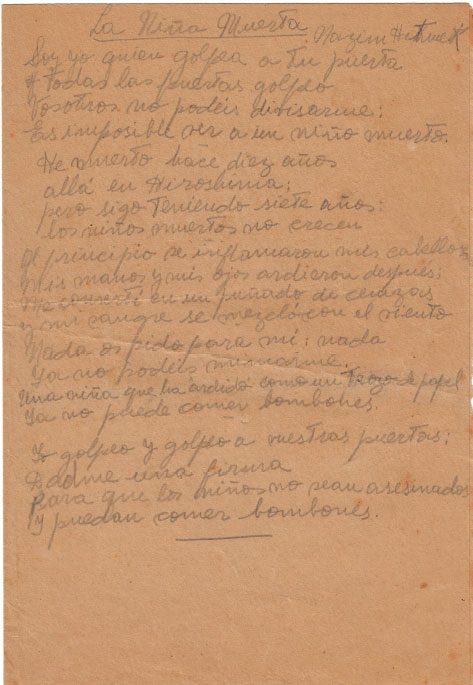 La Niña Muerta. Nazim Hikmet
Soy yo quien golpea a tu puerta
A todas las puertas golpeo
Vosotros no podéis divisarme:
Es imposible ver a un niño muerto.
He muerto hace diez años
allá en Hiroshima;
pero sigo teniendo siete años:
los niños muertos no crecen
Al principio se inflamaron mis cabellos
Mis manos y mis ojos ardieron después;
Me convertí en un puñado de cenizas
y mi sangre se mezcló con el viento
Nada os pido para mí: nada
Ya no podéis mimarme.
Una niña que ha ardido como un trozo de papel
Ya no puede comer bombones.
Yo golpeo y golpeo a vuestras puertas:
Dadme una firma
Para que los niños no sean asesinados
Y puedan comer bombones.